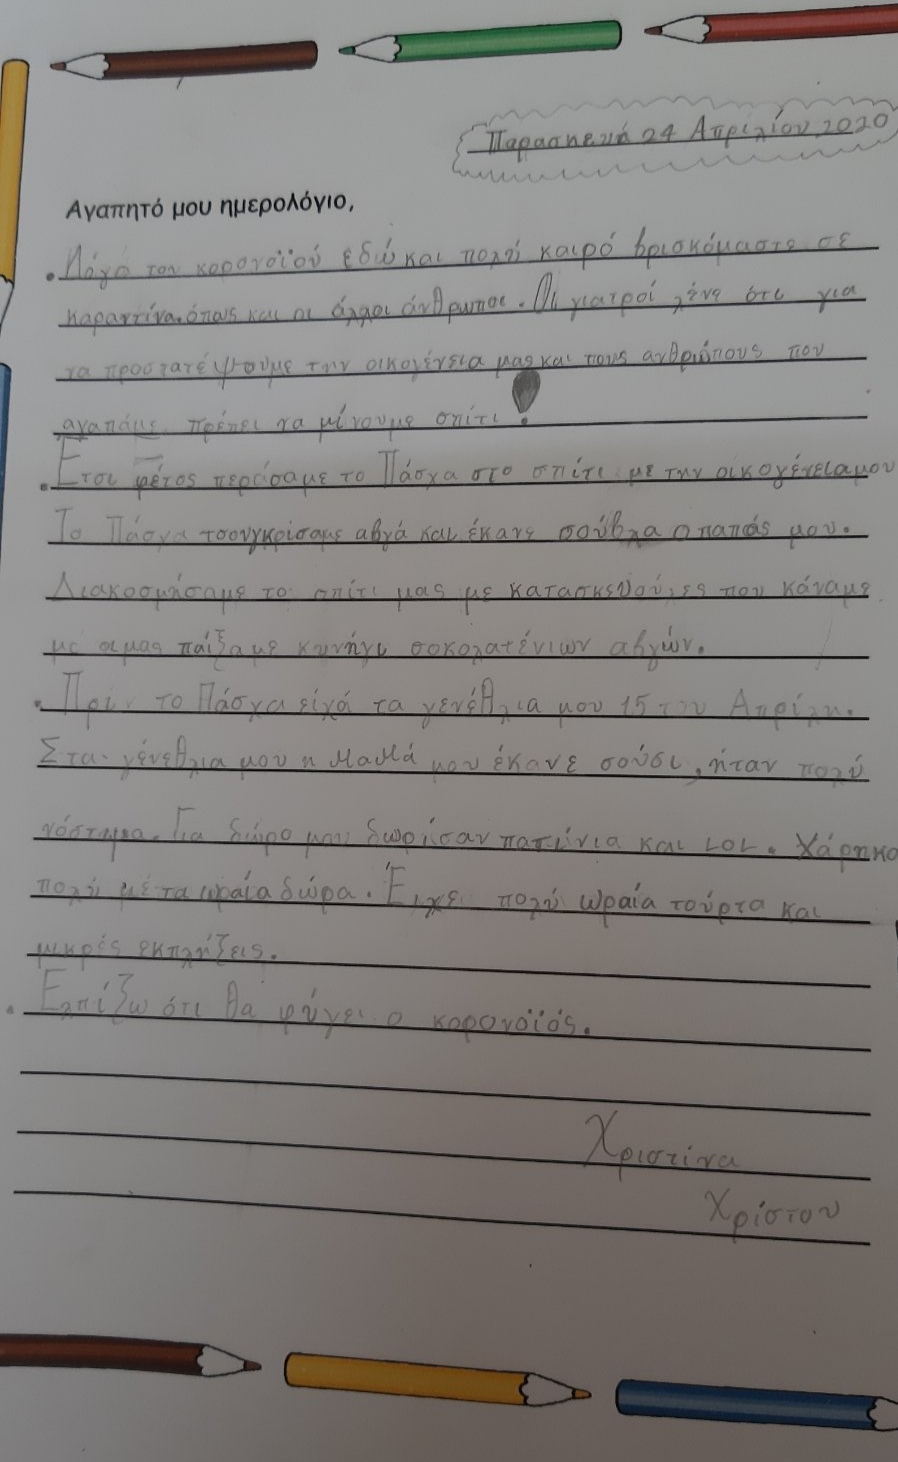 Παρασκευή 24 Απριλίου 2020
Αγαπητό μου ημερολόγιο,
• Λόγο του κορονοϊού εδώ και πολύ καιρό βρισκόμαστε σε
καραντίνα.όπως και οι άλλοι άνθρωποι. Οι γιατροί λένε ότι για
να προστατέψουμε την οικογένεια μας και τους ανθρώπους που
αγαπάμε πρέπει να μείνουμε σπίτι!
• Έτσι φέτος περάσαμε το Πάσχα στο σπίτι με την οικογένεια μου
Το Πάσχα τσουγκρίσαμε αβγά και έκανε σούβλα ο παπάς μου.
Διακοσμήσαμε το σπίτι μας με κατασκευούλες που κάναμε
με παίξαμε κυνήγι σοκολατένιων αβγών.
• Πριν το Πάσχα είχά τα γενέθλια μου 15 του Απρίλη.
Στα γένεθλια μου η μαμά μου έκανε σούσι, ήταν πολύ
νόστιμα. Για δώρο μου δωρίσαν πατίνια και LOL. Χάρηκα
πολύ με τα ωραία δώρα. Είχε πολύ ωραία τούρτα και
μικρές εκπλήξεις.
• Ελπίζω ότι θα φύγει ο κορονοϊός.
Χριστίνα
Χρίστου